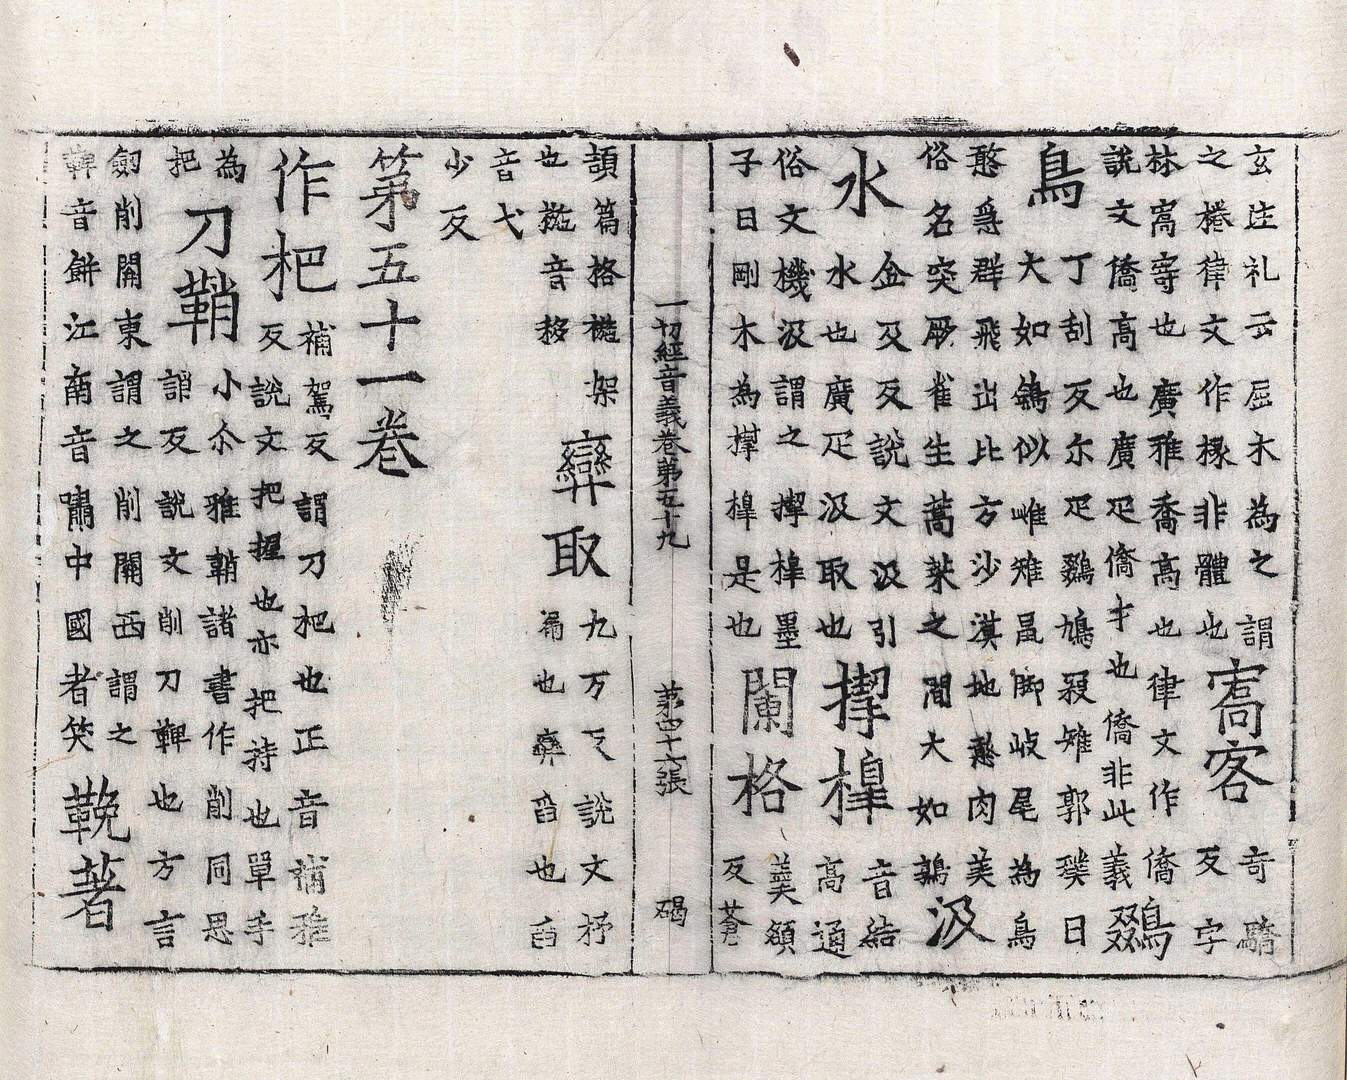 玄注礼云屈木為之謂
之捲律文作椽非體也
㝯客
奇驕
反字
林㝯寄也廣雅喬高也律文作僑
說文僑高也廣疋僑才也僑非此義
鵽
鳥
丁刮反尒疋鵽鳩寇雉郭璞曰
大如鴿似雌雉鼠脚岐尾為鳥
憨為群飛出比方沙漠地憨肉美
俗名突厥雀生蒿萊之間大如鶉
汲
水
金及反說文汲引
水也廣疋汲取也
揳槹
音結
高通
俗文機汲謂之揳槹墨
子曰剛木為揳槹是也
闌格
羹頟
反蒼
一切經音義卷第五十九 第四十六張 碣
頡篇格㩼架
也㩼音移
取
九万反說文抒
漏也舀也舀
音弋
少反
第五十一卷
作杷
補駕反謂刀杷也正音補雅
反說文把握也亦把持也單手
為
把
刀鞘
小尒雅鞘諸書作削同思
誚反說文削刀鞞也方言
劒削關東謂之削關西謂之
鞞音餅江南音嘯中國者笑
鞔著